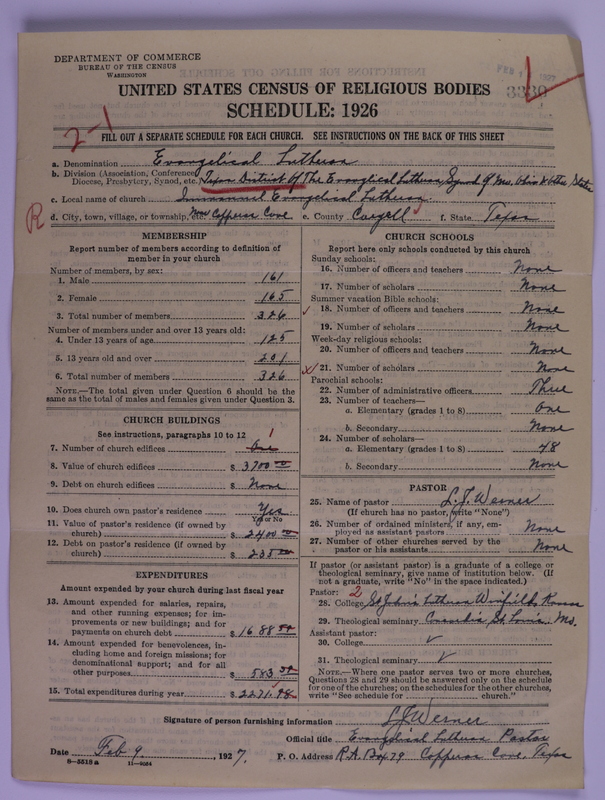 DEPARTMENT OF COMMERCE
BUREAU OF THE CENSUS
WASHINGTON
FEB 1927
3330
UNITED STATES CENSUS OF RELIGIOUS BODIES
SCHEDULE: 1926
2-1
FILL OUT A SEPARATE SCHEDULE FOR EACH CHURCH. SEE INSTRUCTIONS ON THE BACK OF THIS SHEET
a. Denomination Evangelical Lutheran
b. Division (Association, Conference, Diocese, Presbytery, Synod, etc.) Texas District of The Evangelical Lutheran Synod of Mo, Ohio & Other States
c. Local name of church Immanuel Evangelical Lutheran
R
d. City, town, village, or township, etc. Near Copperas Cove e. County Coryell f. State Texas
MEMBERSHIP
Report number of members according to definition of
member in your church
Number of members, by sex:
1. Male 161
2. Female 165
3. Total number of members 326
Number of members under and over 13 years old:
4. Under 13 years of age 125
5. 13 years old and over 201
6. Total number of members 326
NOTE.—The total given under Question 6 should be the
same as the total of males and females given under Question 3.
CHURCH BUILDINGS
See instructions, paragraphs 10 to 12
1
7. Number of church edifices One
8. Value of church edifices $ 3700 00
9. Debt on church edifices $ None
10. Does church own pastor's residence Yes
Yes or No
11. Value of pastor's residence (if owned by
church) $ 2400 00
12. Debt on pastor's residence (if owned by
church) $ 235 00
EXPENDITURES
Amount expended by your church during last fiscal year
13. Amount expended for salaries, repairs,
and other running expenses; for im-
provements or new buildings; and for
payments on church debt $ 1688
14. Amount expended for benevolences, in-
cluding home and foreign missions; for
denominational support; and for all
other purposes $ 583
15. Total expenditures during year $ 2271.98
CHURCH SCHOOLS
Report here only schools conducted by this church
Sunday schools:
16. Number of officers and teachers None
17. Number of scholars None
Summer vacation Bible schools:
18. Number of officers and teachers None
19. Number of scholars None
Week-day religious schools:
20. Number of officers and teachers None
21. Number of scholars None
Parochial schools:
22. Number of administrative officers Three
23. Number of teachers—
a. Elementary (grades 1 to 8) One
b. Secondary None
24. Number of scholars—
a. Elementary (grades 1 to 8) 48
b. Secondary None
PASTOR
25. Name of pastor L. J. Werner
(If church has no pastor, write "None")
26. Number of ordained ministers, if any, em-
ployed as assistant pastors None
27. Number of other churches served by the
pastor or his assistants None
If pastor (or assistant pastor) is a graduate of a college or
theological seminary, give name of institution below. (If
not a graduate, write "No" in the space indicated.)
Pastor: 2
28. College St John's Lutheran Winfield, Kansas
29. Theological seminary Concordia St Louis, Mo.
Assistant pastor:
30. College
31. Theological seminary
NOTE.—Where one pastor serves two or more churches,
Questions 28 and 29 should be answered only on the schedule
for one of the churches; on the schedules for the other churches,
write "See schedule for church."
Signature of person furnishing information L J Werner
Official title Evangelical Lutheran Pastor
Date Feb 9, 1927. P. O. Address R.A. Box 79 Copperas Cove, Texas
8-5518 a 11-9064